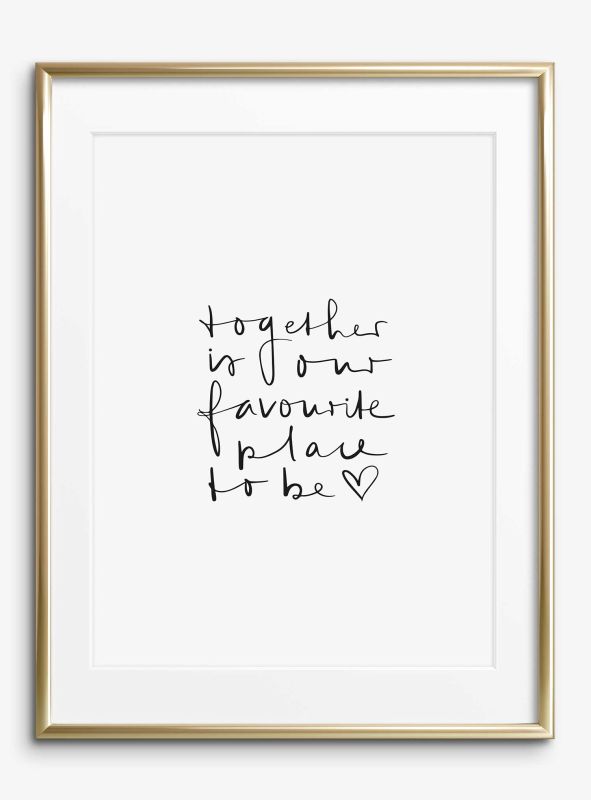 together
is our
favourite
place
to be ♡